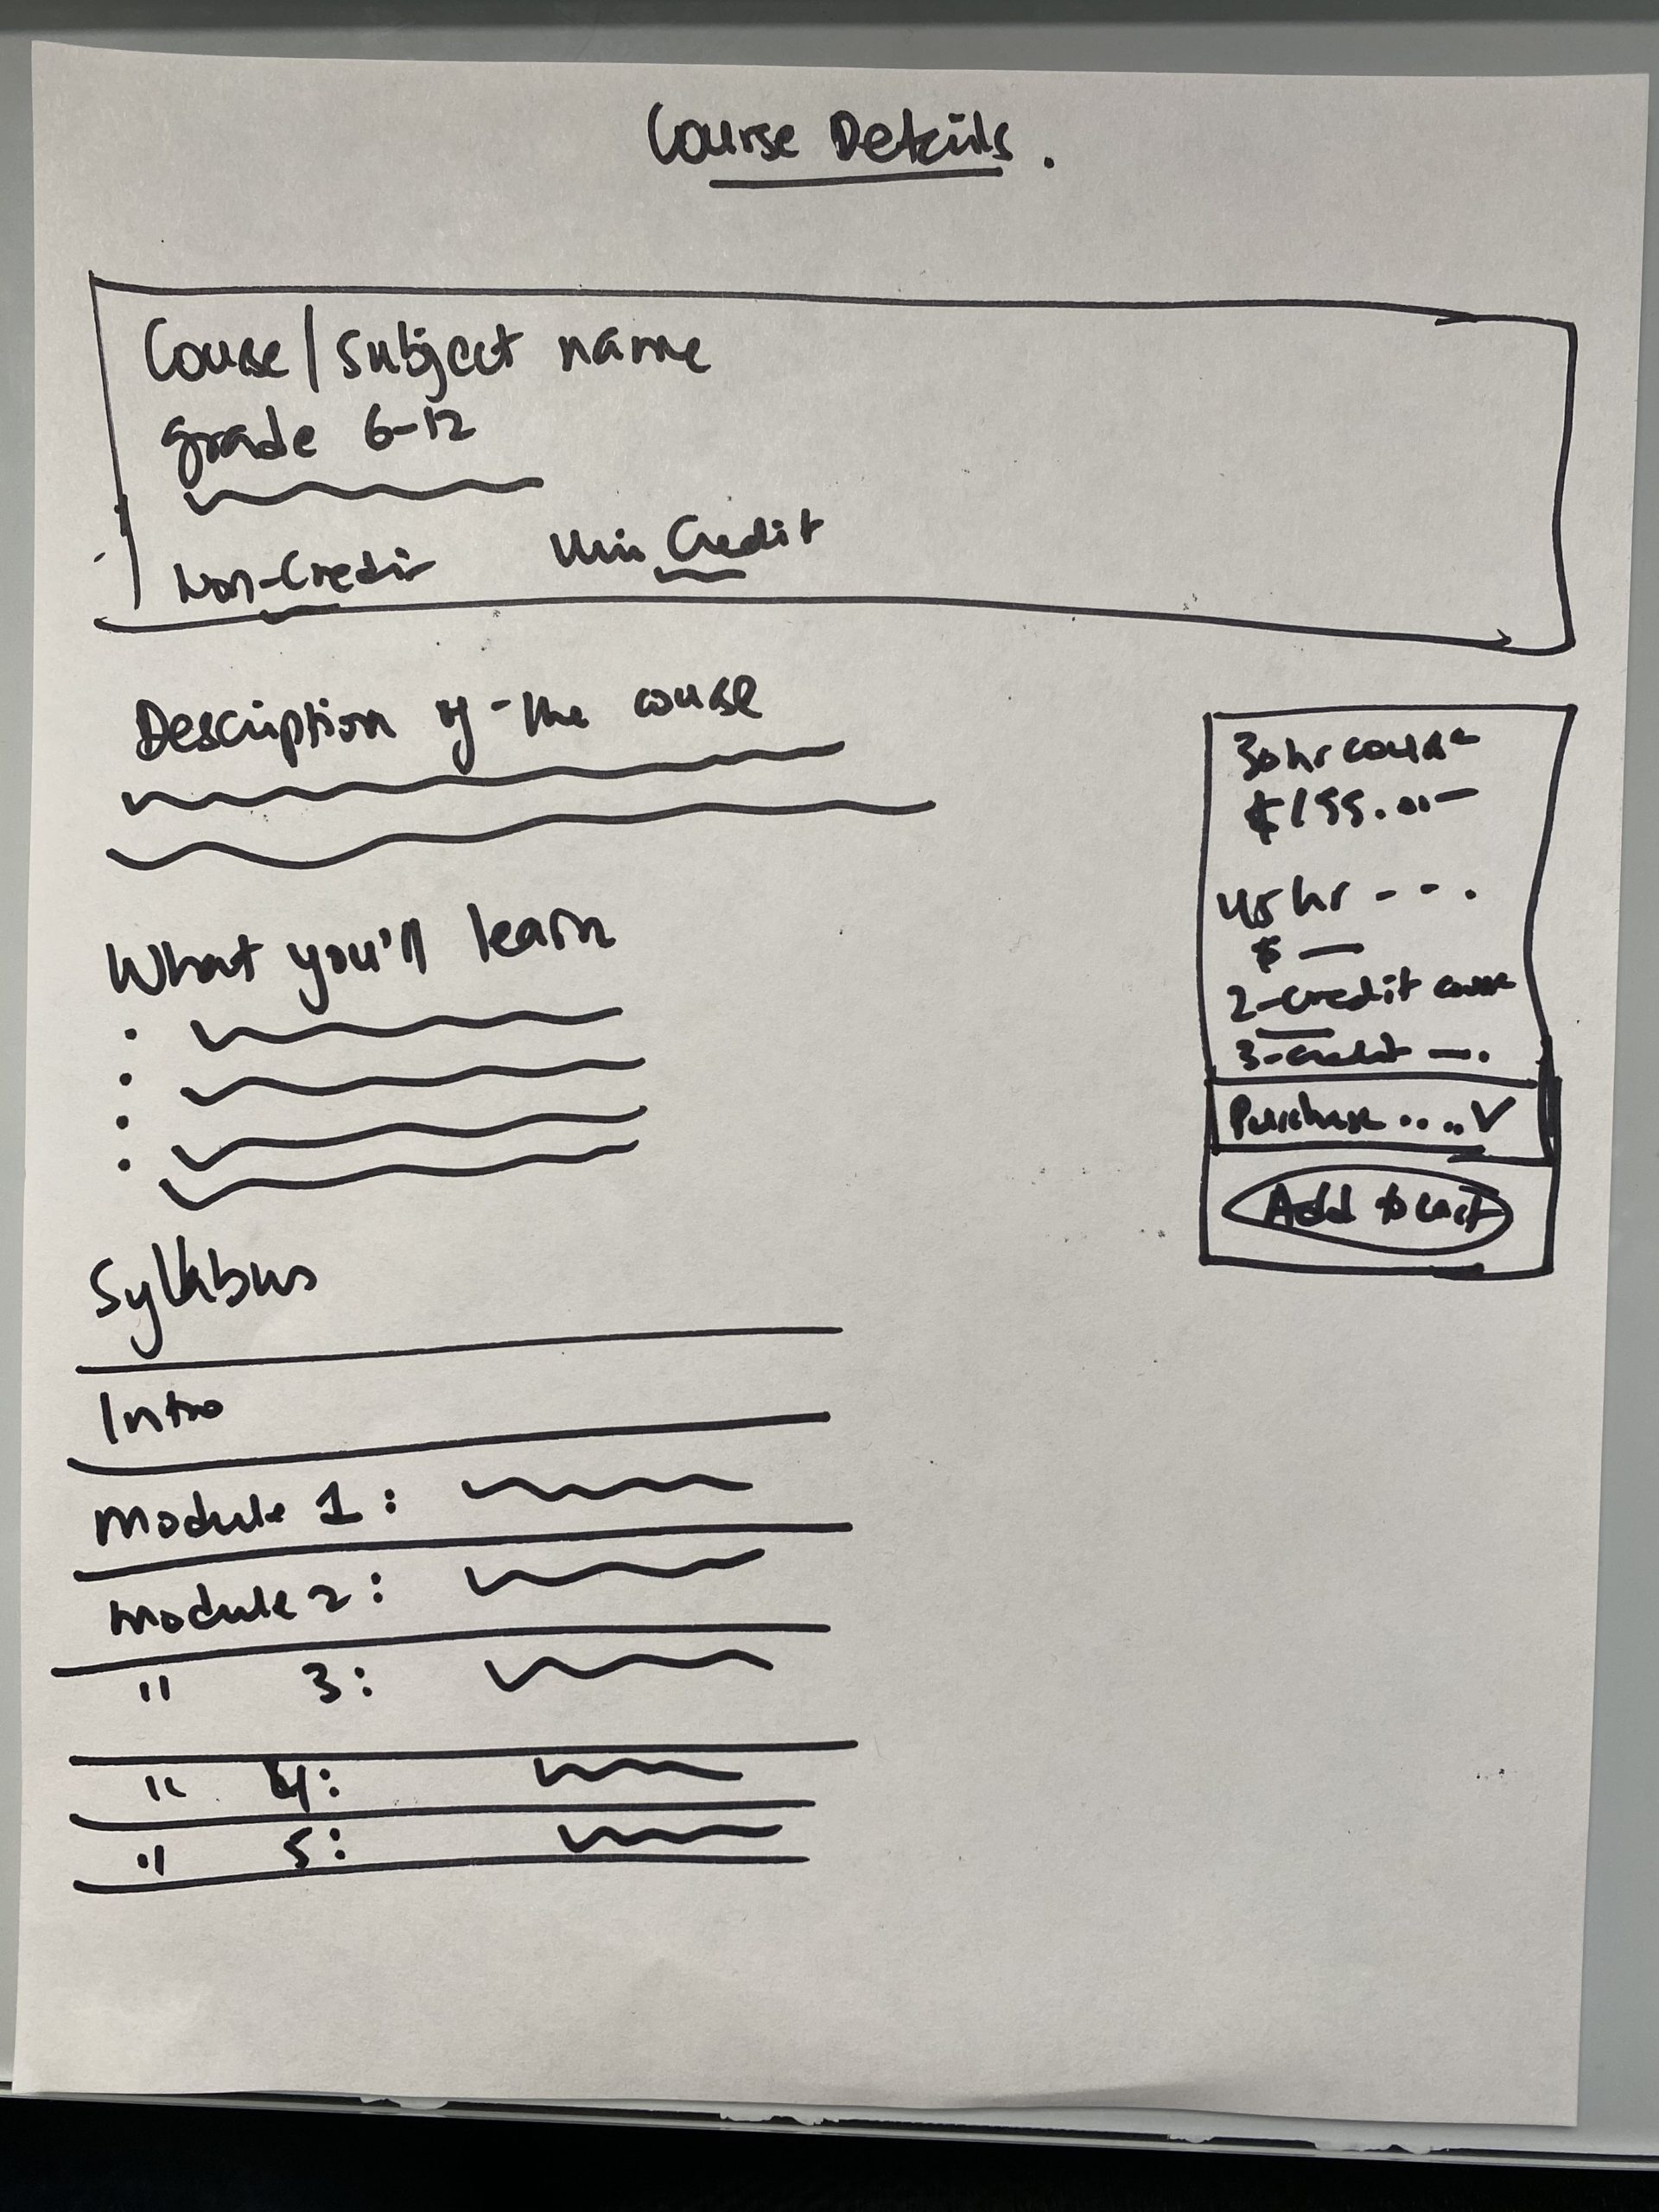 Course Details.
Course/Subject name
grade 6-12
Non-Credit Univ Credit
Description of the course
What you'll learn
Syllabus
Intro
Module 1:
Module 2:
" 3:
" 4:
" 5:
30hr course
$199.00
45 hr - - .
$ —
2-credit course
3-credit —.
Purchase ....
Add to cart